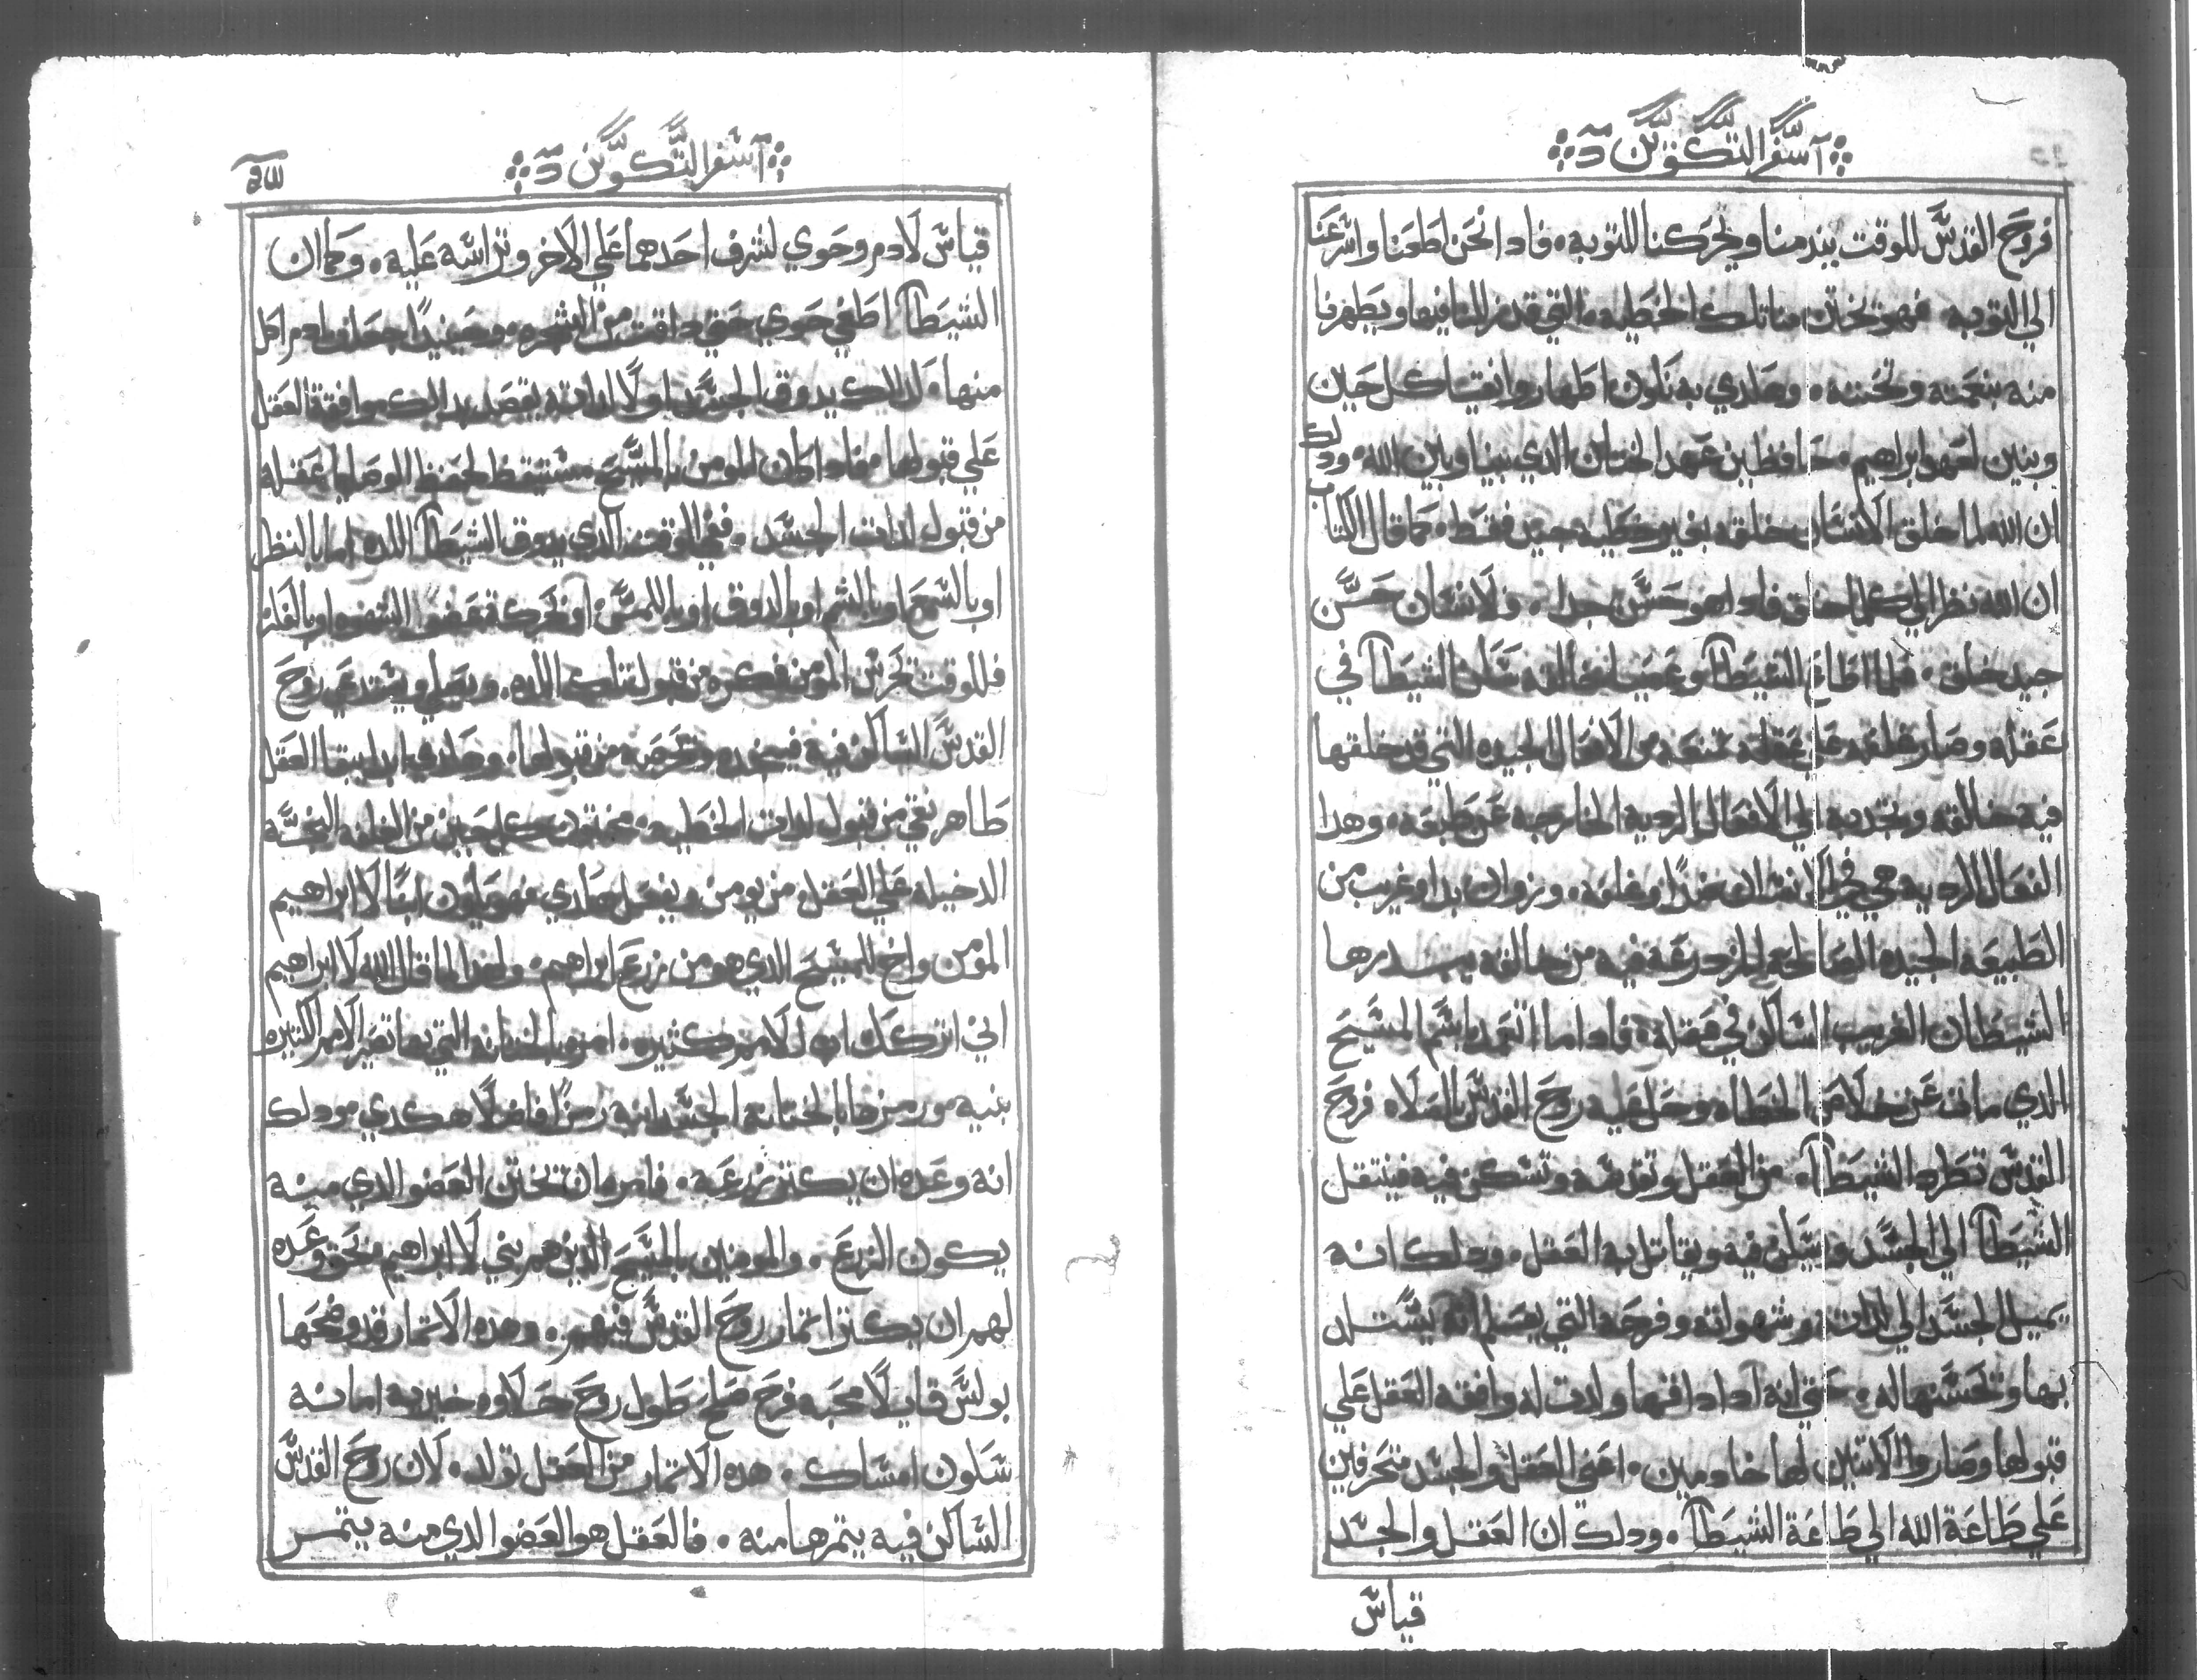 آ سفر التكوين
فروح القدس للوقت يندمنا ويحركنا للتوبه، فادا نحن اطعنا واسرعنا
الي التوبه فهو تختن منا تلك الخطيه التي قد زللنا فيها ويطهرنا
منه بنعمته وتحننه، وهادي به نكون اطهار وانقيا كل حين
وبنين لعهد ابراهيم، حافظين عهد الختان الدي بيننا وبين الله، ودلك
ان الله لما خلق الانسان خلقه بغير خطيه حين فقط، كما قال الكتاب
ان الله نظر الي كلما خلق فادا هو حسن جدا، ولانسان حسن
جيد خلق، فلما اطاع الشيطان وعصي لخالقه سكن الشيطان في
عقله وصار علي عقله تمنعه من الافعال الجيده التي قد خلقها
فيه خالقه وتجدبه الي الافعال الرديه الخارجه عن طبعه، وهدا
الفعال الرديه هي وغلفه، وزوان بدا وغريب من
الطبيعه الجيده الصالحه المزدرعه فيه من خالقه
الشيطان الغريب الساكن في عقله، فادا ما اتعمد باسم المسيح
الدي مات عن خلاص الخطاه وحل عليه روح القدس بالصلاه فروح
القدس تطرد الشيطان من العقل وتقدسه وتسكن فيه فينتقل
الشيطان الي الجسد ويسكن فيه ويقاتل به العقل، ودلك انه
يميل الجسد الي لداته وشهواته وفرحه التي يعلم انه يستلد
بها وتحسنها له، حتي انه ادا داقها ولدت له وافقه العقل علي
قبولها وصاروا الاتنين لها خادمين، اعني العقل والجسد منحرفين
علي طاعة الله الي طاعة الشيطان، ودلك ان العقل والجسد
قياس
آ سفر التكوين
قياس لادم وحوي لشرف احدهما علي الاخر وتراسه عليه، وكما ان
الشيطان اطغي حوي حتي داقت من الشجره، وحينيدا جعلت ادم اكل
منها، كدلك يدوق الجسد اولا لداته يقصد بدالك موافقة العقل
علي قبولها، فادا كان المومن بالمسيح مستيقظ لحفظ الوصايا عقله
من قبول لدات الجسد، ففي الوقت الدي يدوق الشيطان اللده اما بالنظر
او بالسمع او بالشم او بالدوق او باللمس او بحركة عضو الشهوه او بالفكر
فللوقت تحرس المومن فكره من قبول تلك اللده، ويصلي ويستدعي روح
القدس الساكن فيه فيعضده وتحرصه من قبولها، وهادي ابدا يبقا العقل
طاهر نقي من قبول لدات الخطيه، مختون كل حين من الغلفه النجسه
الدخيله علي العقل، من يومن ويفعل هادي فهو يكون ابنا لا ابراهيم
المومن واخ للمسيح الدي هو من زرع ابراهيم، ولهدا لما قال الله لا ابراهيم
اني اتركك اب لامم كثيره، امره بالختانه التي بها تصير الامم الكثيره
بنيه ورمزها بالختانه الجسدانيه رمزا فاضلا هكدي ودلك
انه وعده ان يكتر زرعه، فامره ان تختن العضو الدي منه
يكون الزرع، والمومنين بالمسيح الدين هم بني لا ابراهيم بحق وعده
لهم ان يكتر اتمار روح القدس فيهم، وهده الاتمار قد وضحها
بولس قايلا محبه فرح صلح طول روح حلاوه خيريه امانه
سكون امساك، هده الاتمار من العقل تولد، لان روح القدس
الساكن فيه يتمرها منه، فالعقل هو العضو الدي منه يتمر